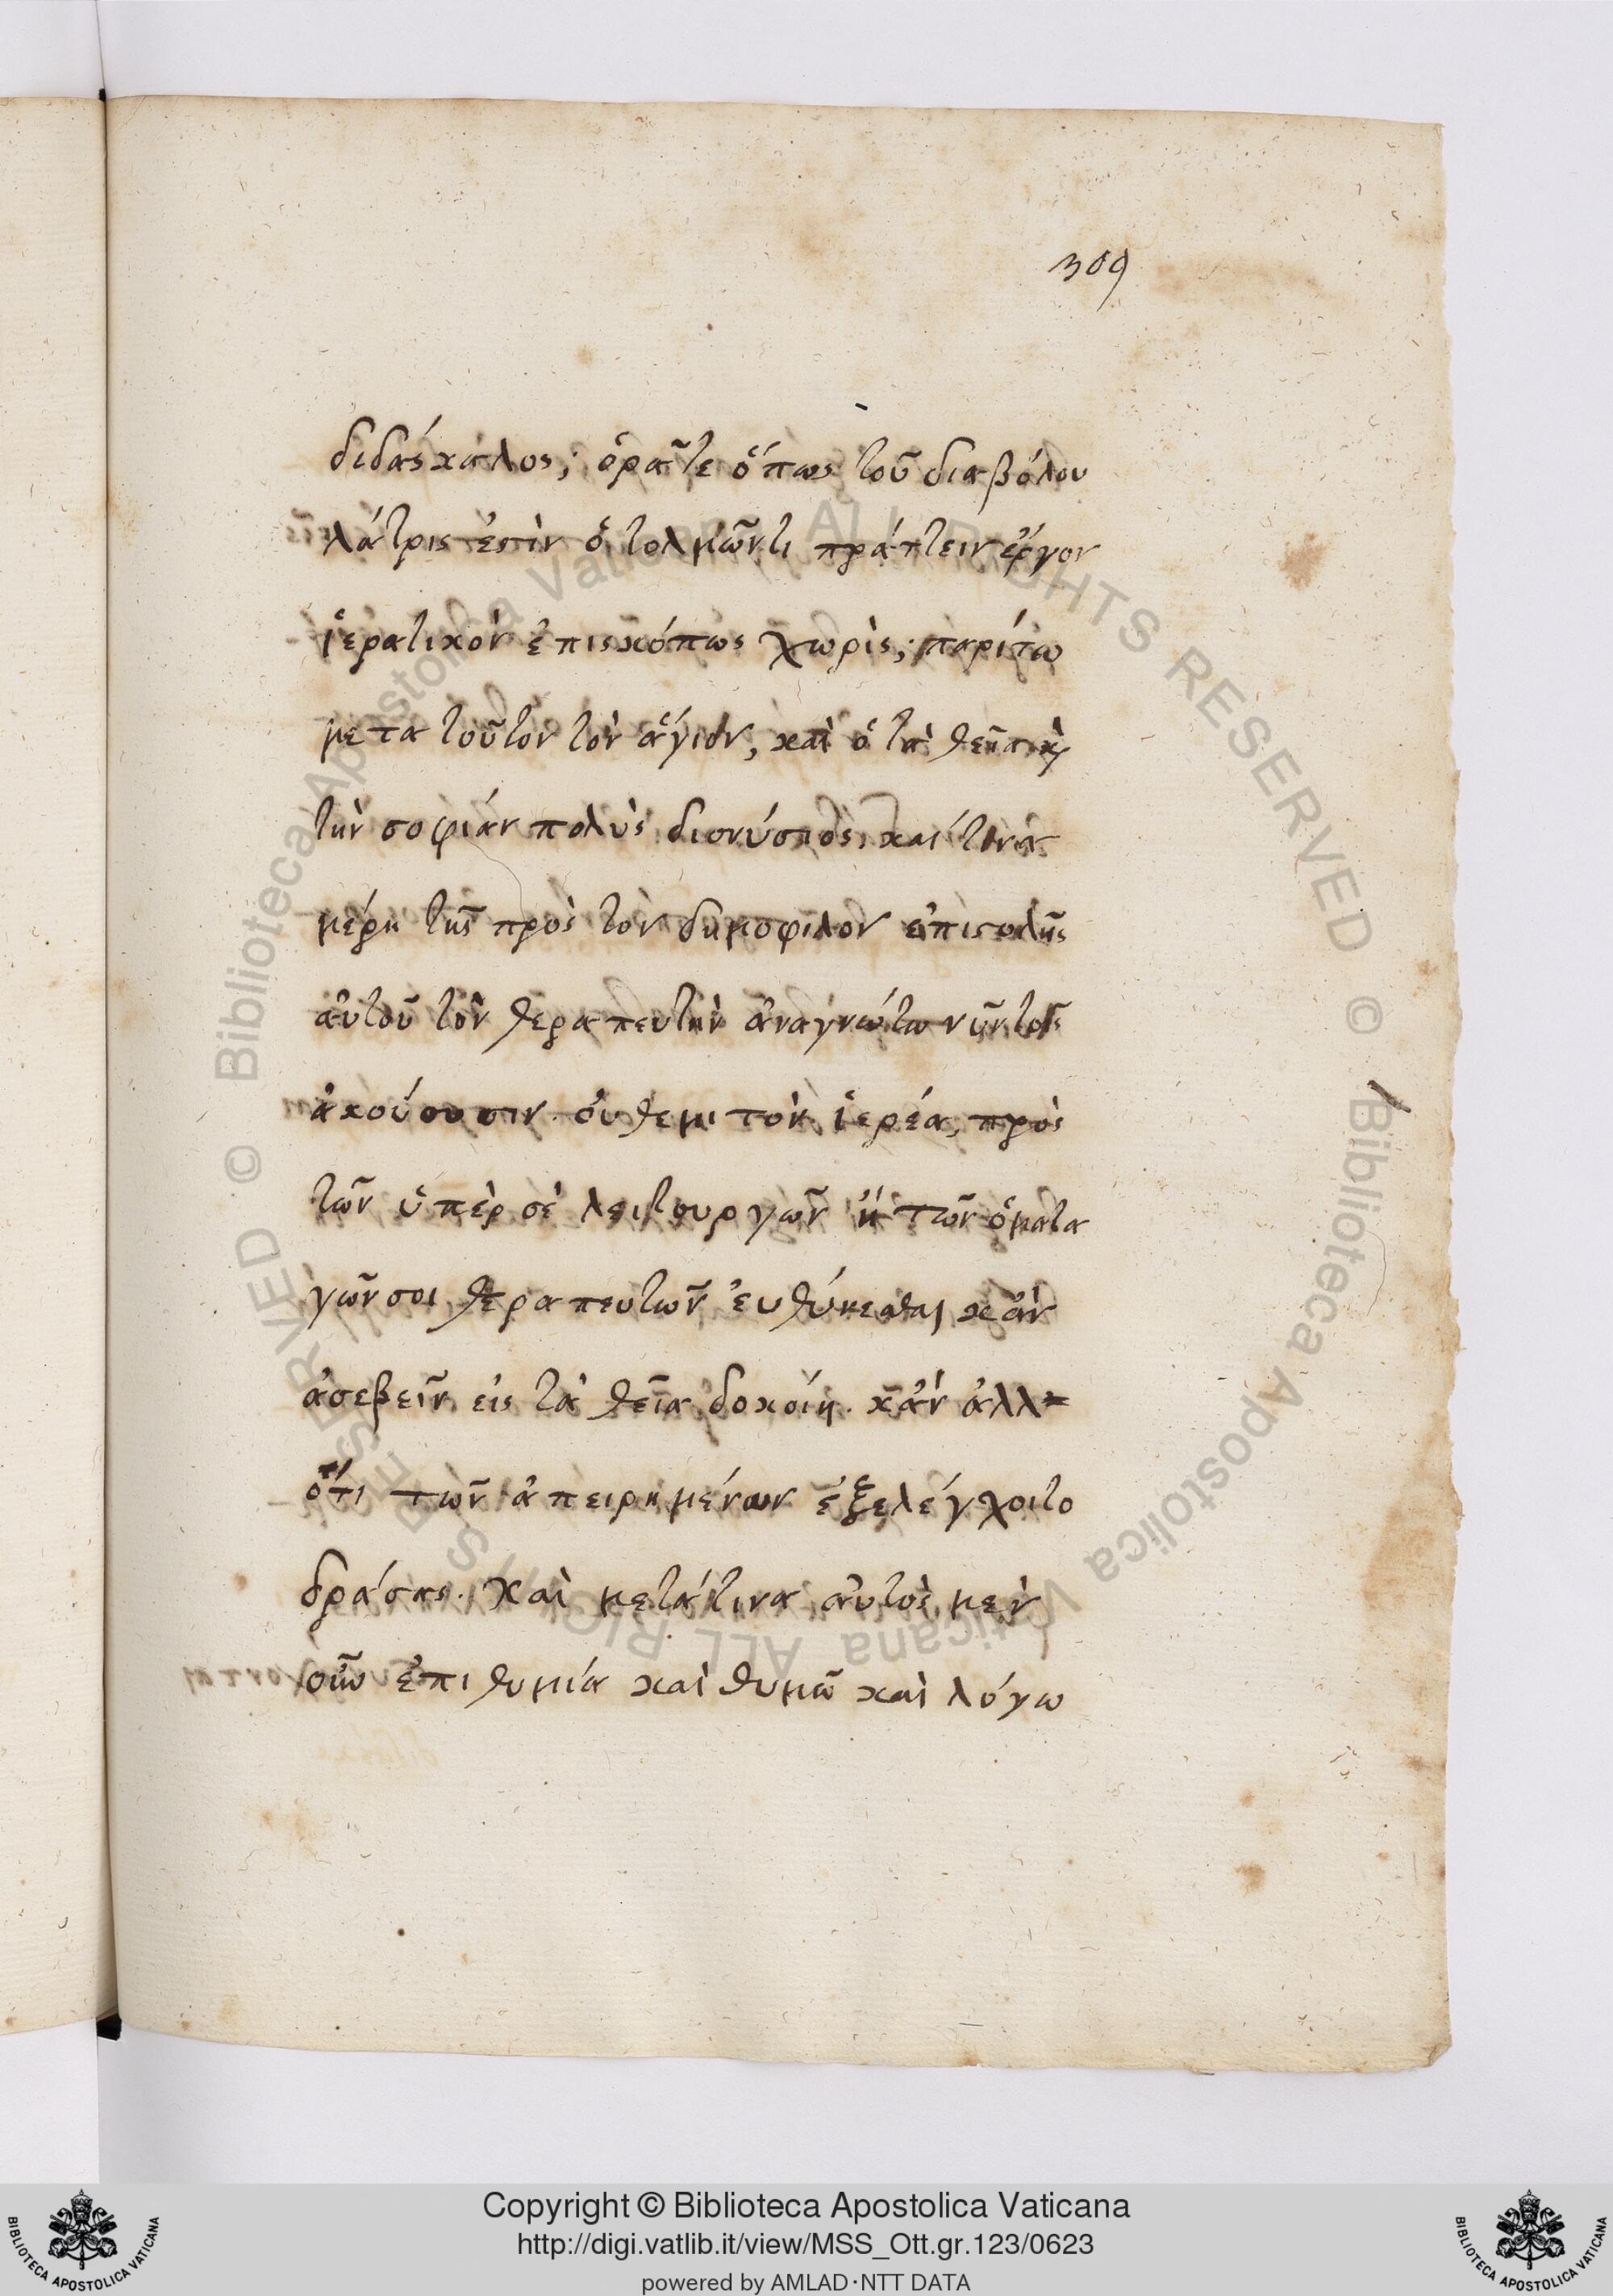 309
διδάσκαλος; ὁρᾶτε ὅπως τοῦ διαβόλου
λάτρις ἐστὶν ὁ τολμῶν τι πράττειν ἔργον
ἱερατικὸν ἐπισκόπως χωρὶς; παρίτω
μετα τοῦτον τὸν ἅγιον, καὶ ὁ τὰ θεῖα κỳ
τὴν σοφίαν πολὺς διονύσιος, καί τινα
μέρη τῆς πρὸς τον δημοφιλον ἐπιστολῆς
αὐτοῦ τὸν θεραπευτὴν ἀναγνώτω νῦν τοῖς
ἀκούουσιν. οὐ θεμιτὸν ἱερέα, πρὸς
τῶν ὑπὲρ σὲ λειτουργῶν ἢ τῶν ὁματα
γῶν σοι θεραπευτῶν εὐθύνεσθαι κἂν
ἀσεβεῖν εἰς τὰ θεῖα δοκοίη. κἂν ἀλλ=
ότι τῶν ἀπειρημένων ἐξελέγχοιτο
δράσας. καὶ μετά τινα αὐτὸς μὲν
οὖν ἐπιθυμία καὶ θυμῶ καὶ λόγω
© Biblioteca Apostolica Vaticana ALL RIGHTS RESERVED © Biblioteca Apostolica Vaticana ALL RIGHTS RESERVED
Copyright © Biblioteca Apostolica Vaticana
http://digi.vatlib.it/view/MSS_Ott.gr.123/0623
powered by AMLAD·NTT DATA
BIBLIOTECA APOSTOLICA VATICANA
BIBLIOTECA APOSTOLICA VATICANA